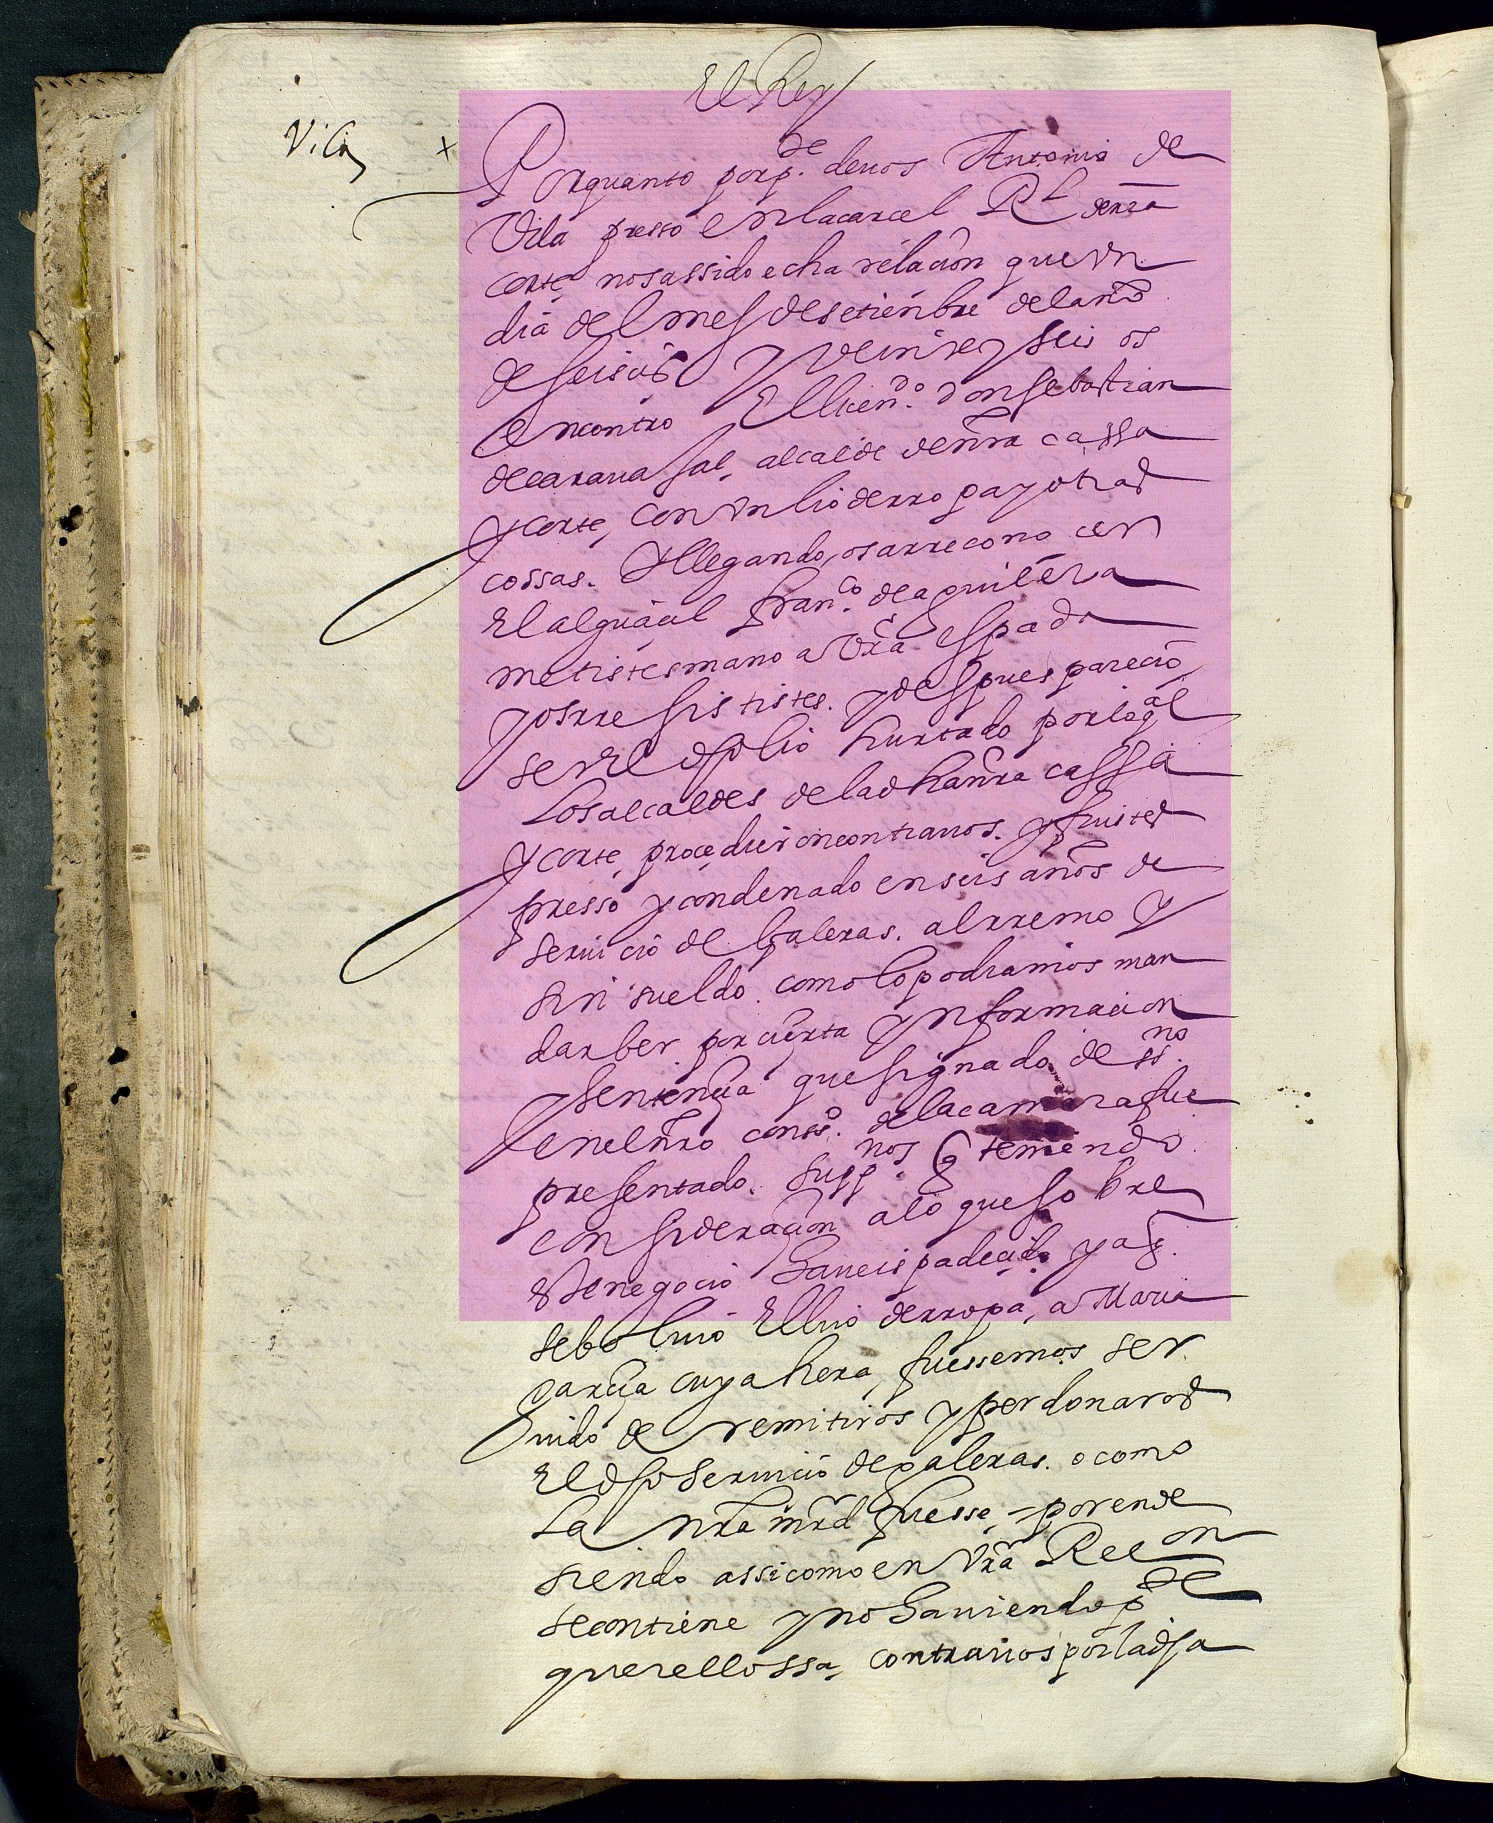 El Rey
Vila
Porquanto porp.de devos Antonio de
Vila presso enlacarcel Rl denra
corte nosassido echa relaçion que Vn
dia del mes desetienbre delaño
de seisos y veinte y seis os
encontro El licendo. don sebastian
decaravaJal, alcalde denra cassa
y corte, con Vn lio derropa y otras
cossas. Y llegando, osarreconocer
El alguaçil Franco. deaguilera
metistes mano a Vra espada
y osrresististes. y despues pareçio,
serel dho lio hurtado porloqual
Losalcaldes deladha nra cassa
y corte, proçedieron contravos. y fuistes
presso y condenado en seis años de
seruicio de Galeras. alrremo y
sin sueldo. como lo podriamos man
darber por çierta ynformacion
y sentençia que signado de ssno.
enelnro consso. delacamara fue
presentado. suppnos. q teniendo
consideraçion alo que sobre
este negocio haveis padecido y aq.
sebolvio El lio derropa, a Maria
garçia cuya hera, fuessemos ser
uido de remitiros y perdonaros
El dho seruicio degaleras. o como
La nra mrd fuesse, porende
siendo assi como en Vra Relon
secontiene y no haviendo pde
querellossa, contravos por ladha